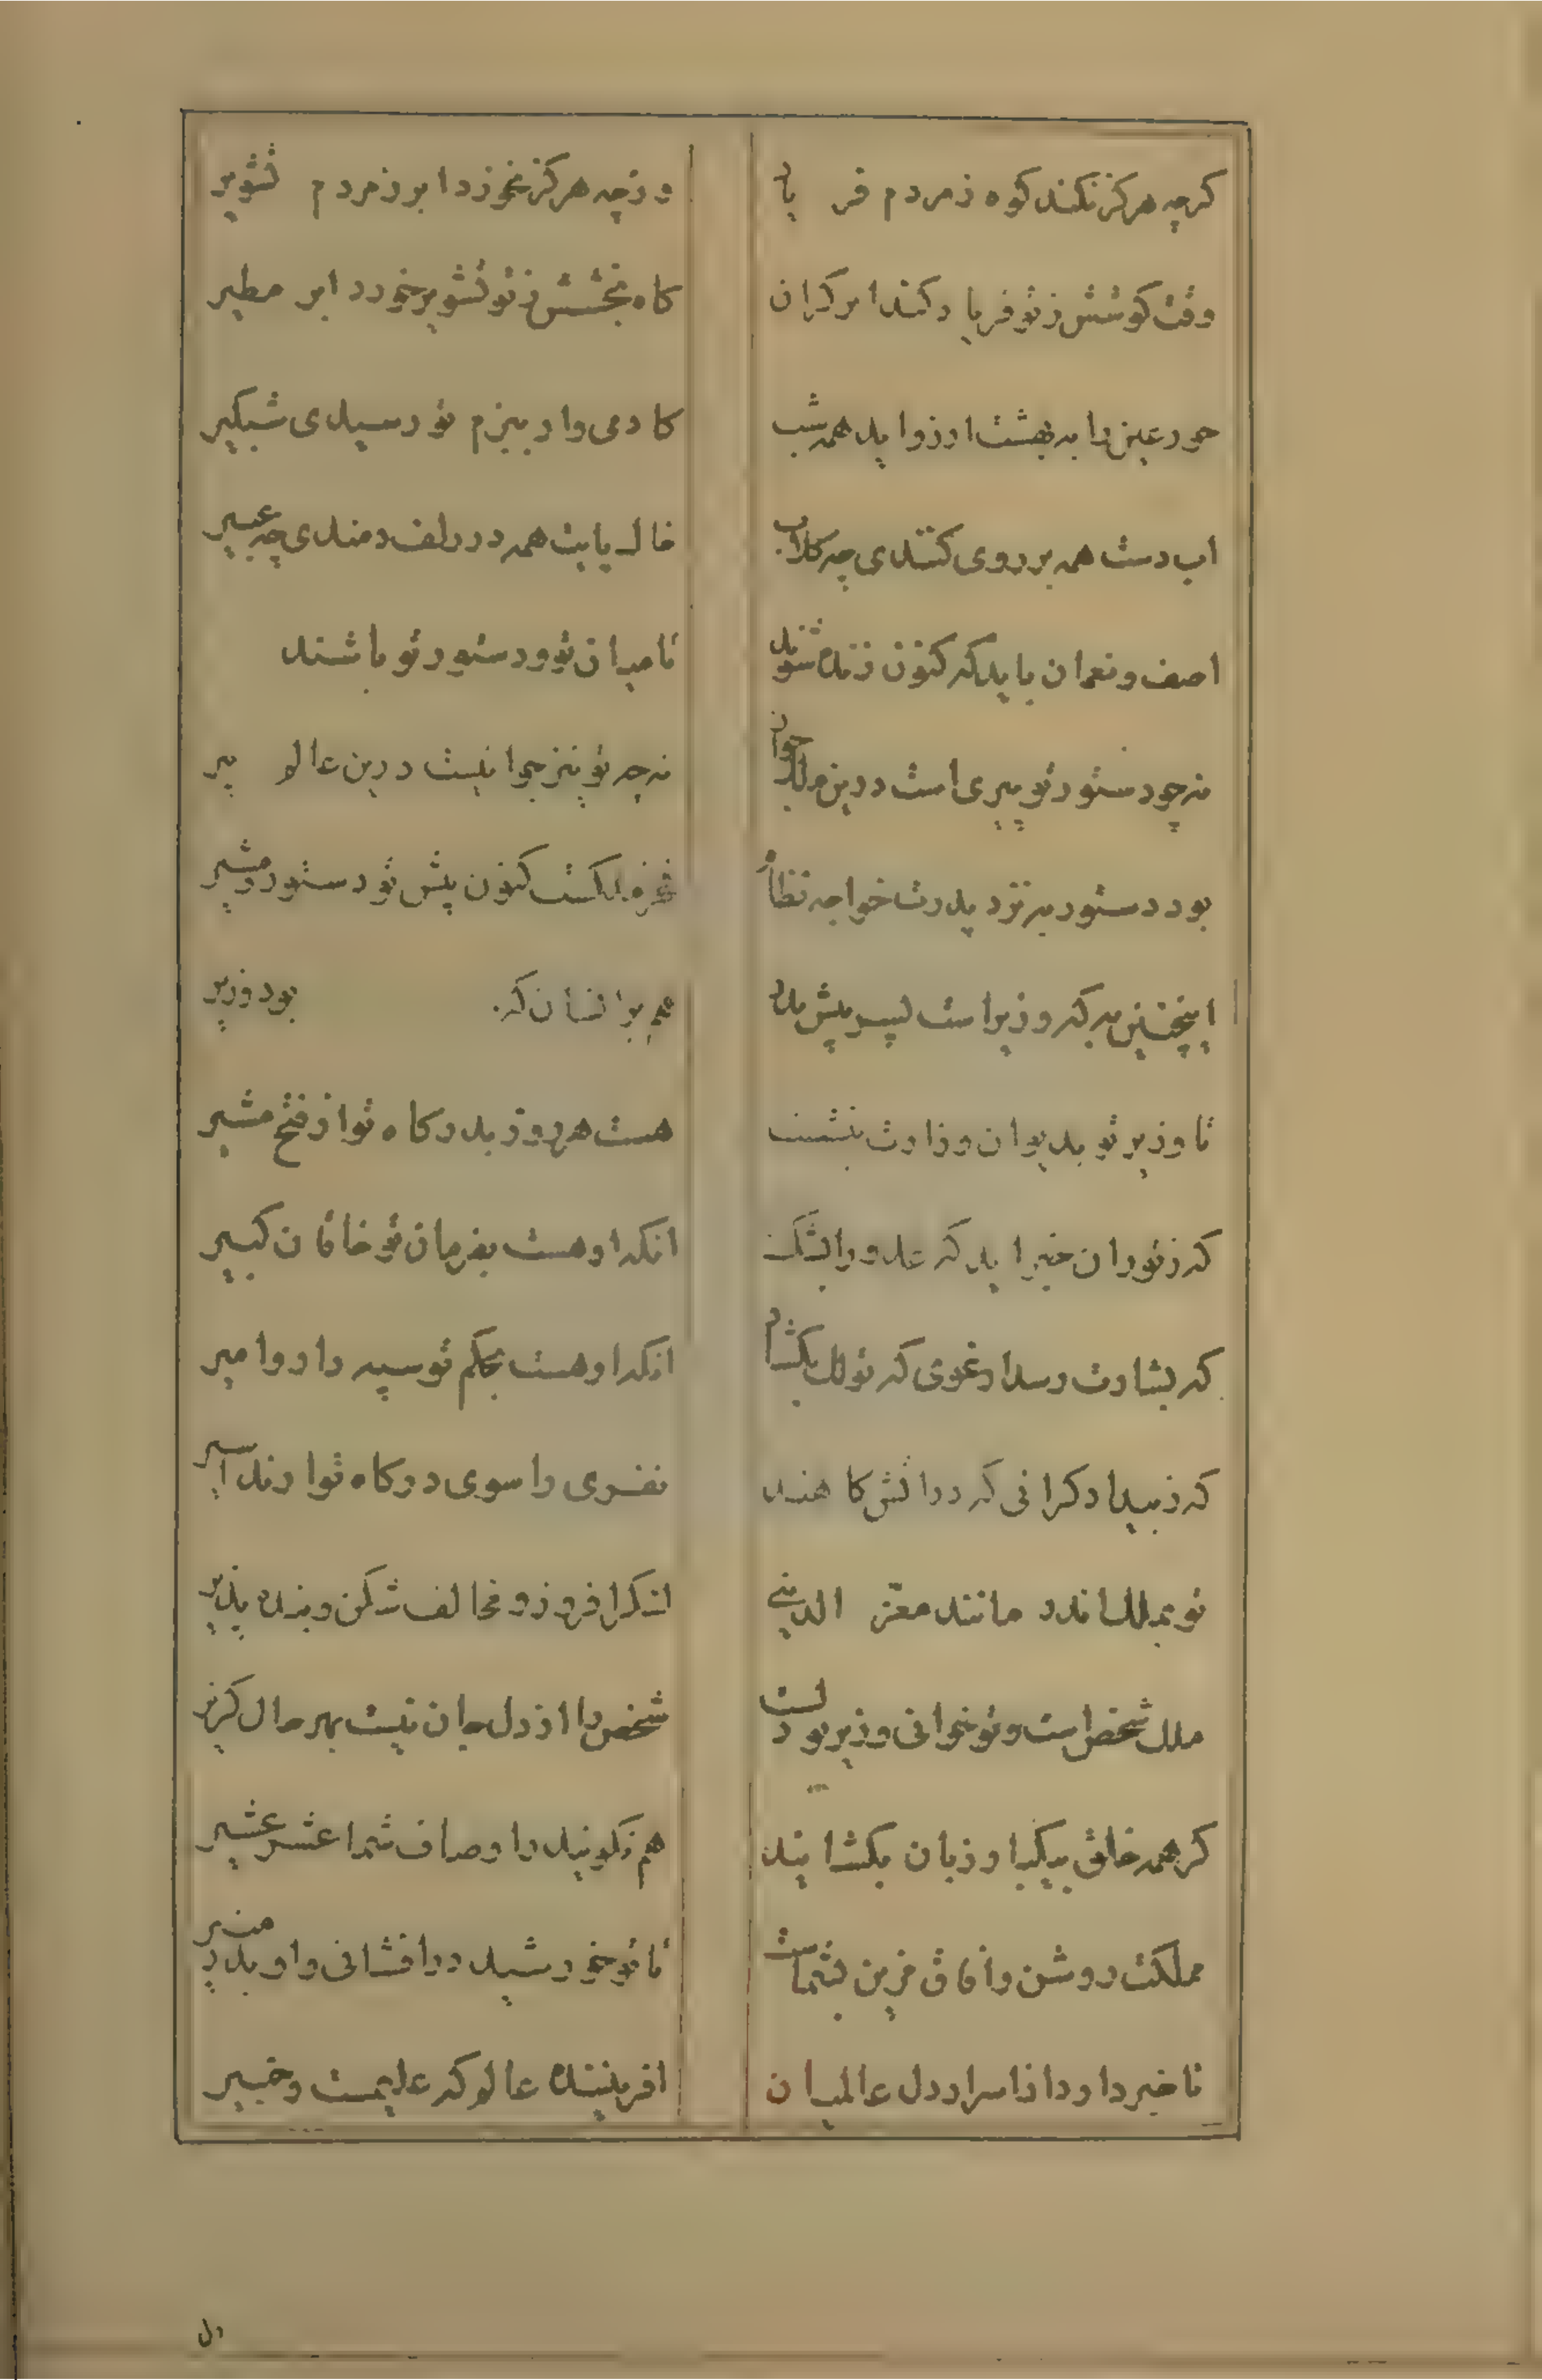 کرچه هرکز نکند کوه ز مردم فر یاد
ورچه هرکز نخورد ابر ز مردم تشویر
وقت کوشش ز تو فریاد کند ابر کران
کاه بخشش ز تو تشویر خورد ابر مطیر
حور عین را به بهشت ارزو اید همه شب
کادمی وار ببزم تو رسیدی شبکیر
اب دست همه بر روی کنندی چه کلاب
خاک پایت همه در زلف دمندی چه عبیر
اصف و نعمان باید که کنون زنده شوند
تا میران تو و دستور تو باشند
نه چو دستور تو پیری است درین ملک جوان
نه چه تو نیز جوانیست درین عالم پیر
بود دستور به نزد پدرت خواجه نظام
فخر ملکست کنون پیش تو دستور و مشیر
اینچنین به که وزیر است پسر پیش پدر
هم بر انسان که بود وزیر
تا وزیر تو بدیوان وزارت بنشست
هست هر روز بدرکاه تو از فتح مشیر
که ز توران خبر اید که عدو را بشکست
انکه او هست بفرمان تو خاقان کبیر
که بشارت رسد از غوری که تو ملک بکشاد
انکه او هست بحکم تو سپه دار و امیر
که ز بیدادکرانی که در اتش کاهند
نفری را سوی درکاه تو ارند اسیر
تو بملک اندر مانند معزّ الدینی
لشکر افروز و مخالف شکن و بنده پذیر
ملک شخص است و تو خوانی وزیر تو دلست
شخص را از دل و جان نیست بهر حال کزیر
کر همه خلق بیکبار زبان بکشایند
هم نکویند ز اوصاف شما عشر عشیر
مملکت روشن و افاق مزین بشماست
تا تو خورشید درافشانی و او بدر منیر
تا خبر دارد از اسرار دل عالمیان
افریننده عالم که علیمست و خبیر
دل